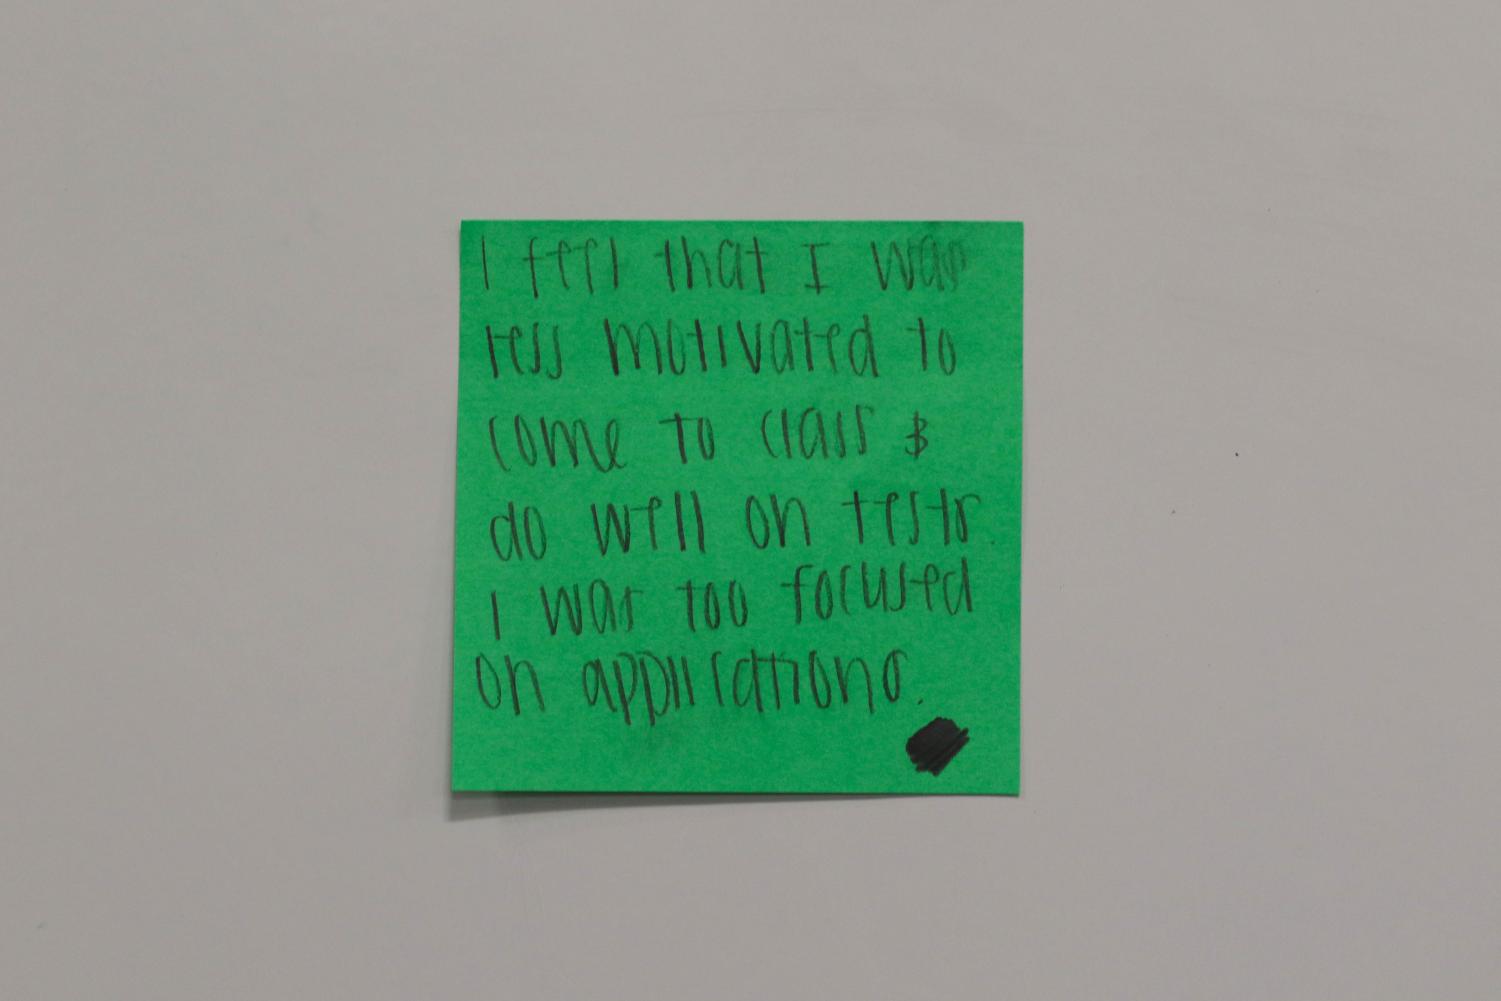 I feel that I was
less motivated to
come to class &
do well on tests.
I was too focused
on applications.